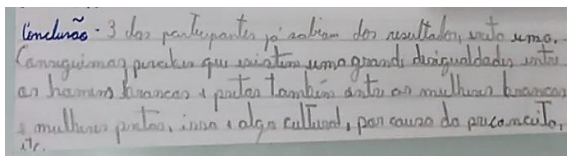 Conclusão - 3 dos participantes já sabiam dos resultados, exeto uma.
Conseguimos perceber que existem uma grande desigualdades entre
os homens brancos e pretos também entre as mulheres brancas
e mulheres pretas, isso e algo cultural, por causa do preconceito,
etc.